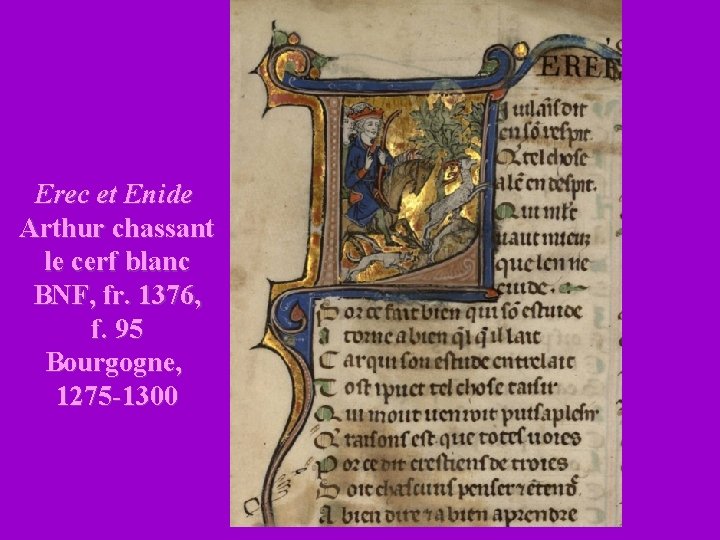 Erec et Enide
Arthur chassant
le cerf blanc
BNF, fr. 1376,
f. 95
Bourgogne,
1275-1300
EREC
i uilains dit
en sō respit
Q tel chose
a lē en despit
Qui mlt
uaut mieuz
que len ne
cuide
Por ce fait bien qui sō estuide
a torne a bien ql qil lait
Car qui son estude entrelait
Tost i puet tel chose taisir
Qui mout uenroit puis a plesir
raisons est que totes uoies
Por ce dit crestiens de troies
Doit chascuns penser ⁊ ētend
A bien dire ⁊ a bien aprendre